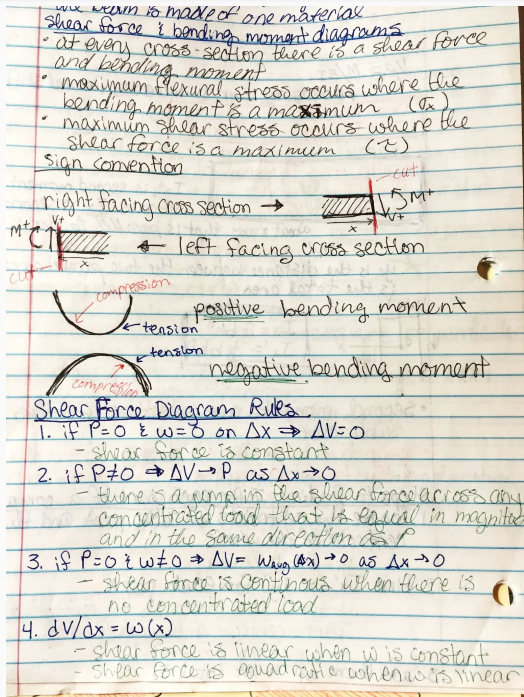 the beam is made of one material
shear force & bending moment diagrams
• at every cross-section there is a shear force
and bending moment
• maximum flexural stress occurs where the
bending moment is a maximum (σx)
• maximum shear stress occurs where the
shear force is a maximum (τ)
sign convention
cut
right facing cross section → M+
V+
x
M+ V+
← left facing cross section
x
cut
compression
positive bending moment
tension
tension
negative bending moment
compression
Shear Force Diagram Rules
1. if P=0 & w=0 on Δx ⇒ ΔV=0
- shear force is constant
2. if P≠0 ⇒ ΔV→P as Δx→0
- there is a jump in the shear force across any
concentrated load that is equal in magnitude
and in the same direction as P
3. if P=0 & w≠0 ⇒ ΔV= wavg(Δx)→0 as Δx→0
- shear force is continous when there is
no concentrated load
4. dV/dx = w(x)
- shear force is linear when w is constant
- shear force is quadratic when w is linear